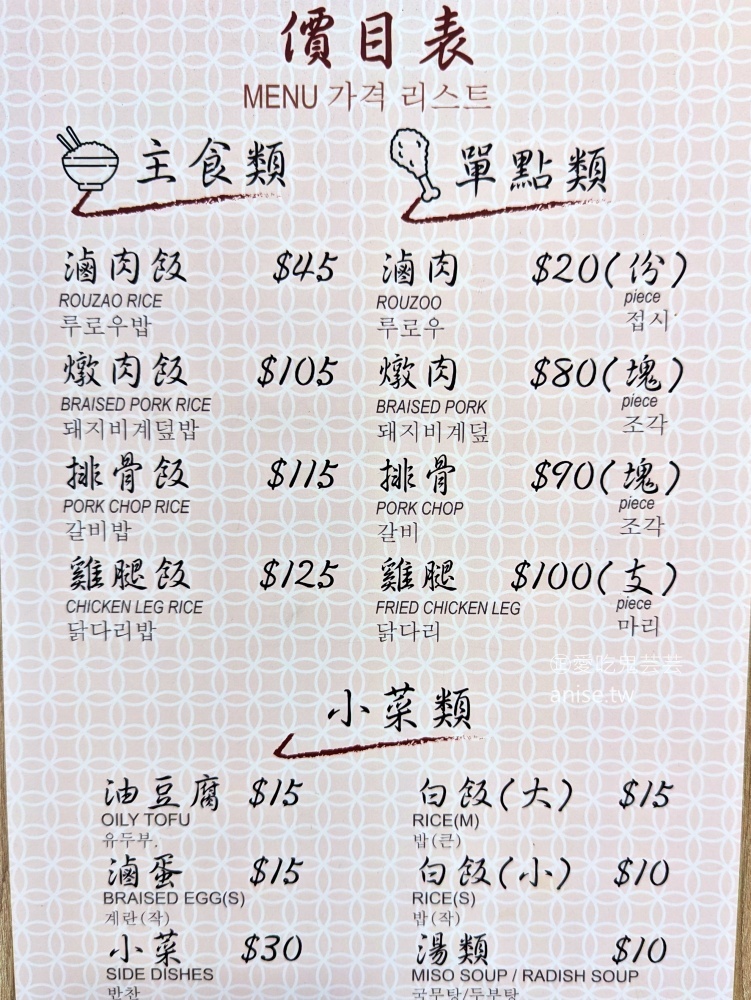 價目表
MENU 가격 리스트
主食類
滷肉飯 $45
ROUZAO RICE
루로우밥
燉肉飯 $105
BRAISED PORK RICE
돼지비계덮밥
排骨飯 $115
PORK CHOP RICE
갈비밥
雞腿飯 $125
CHICKEN LEG RICE
닭다리밥
單點類
滷肉 $20(份)
ROUZOO piece
루로우 접시
燉肉 $80(塊)
BRAISED PORK piece
돼지비계덮 조각
排骨 $90(塊)
PORK CHOP piece
갈비 조각
雞腿 $100(支)
FRIED CHICKEN LEG piece
닭다리 마리
愛吃鬼芸芸
anise.tw
小菜類
油豆腐 $15
OILY TOFU
유두부.
滷蛋 $15
BRAISED EGG(S)
계란(작)
小菜 $30
SIDE DISHES
반찬
白飯(大) $15
RICE(M)
밥(큰)
白飯(小) $10
RICE(S)
밥(작)
湯類 $10
MISO SOUP / RADISH SOUP
국무탕/두부탕